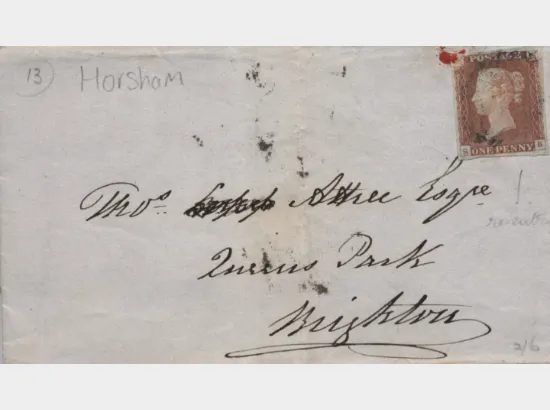 13 Horsham
POSTAGE
S B
ONE PENNY
Thos. Attree Esqre
Queens Park
Brighton
2/6